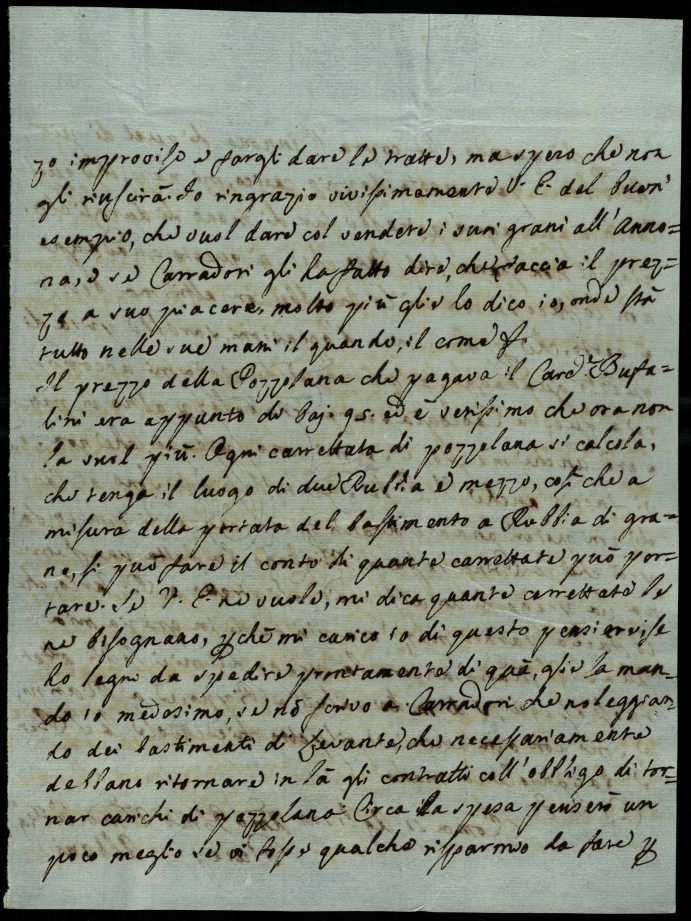 zo improviso e fargli dare le tratte, ma spero che non
gli riuscirà. Io ringrazio vivissimamente V. E. del buon
esempio, che vuol dare col vendere i suoi grani all'Anno=
na, e se Carradori gli ha fatto dire, che faccia il prez=
zo a suo piacere, molto più glie lo dico io, onde stà
tutto nelle sue mani il quando, il come
Il prezzo della Pozzolana che pagava il Card.e Bufa=
lini era appunto di baj. 95. ed è verissimo che ora non
la vuol più. Ogni carrettata di pozzolana si calcola,
che tenga il luogo di due Rubbia e mezzo, così che a
misura della portata del bastimento a Rubbia di gra=
no, si può fare il conto di quante carrettate può por=
tare. Se V. E. ne vuole, mi dica quante carrettate le
ne bisognano, pchè mi carico io di questo pensiere, se
ho legni da spedire prontamente di quà, glie la man=
do io medesimo, se nò scrivo a Carradori che noleggian=
do dei bastimenti di Levante, che necessariamente
debbano ritornare in là gli contratti coll'obbligo di tor=
nar carichi di pozzolana. Circa la spesa penserò un
poco meglio se vi fosse qualche risparmio da fare p